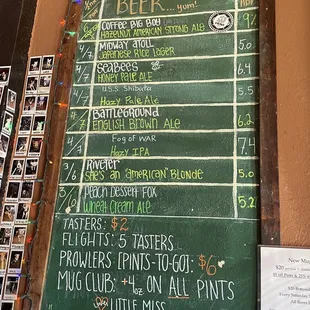 BEER... yum!
COFFEE BIG BOY
HAZELNUT AMERICAN STRONG ALE
9%
4/7
MIDWAY ATOLL
JAPANESE RICE LAGER
5.0
4/7
SEABEES
HONEY PALE ALE
6.4
4/7
U.S.S. SHIBATA
HAZY PALE ALE
5.5
4/7
BATTLEGROUND
ENGLISH BROWN ALE
6.2
4/7
FOG OF WAR
HAZY IPA
7.4
3/6
RIVETER
SHE'S AN AMERICAN BLONDE
5.0
3/6
PEACH DESSERT FOX
WHEAT CREAM ALE
5.2
TASTERS: $2
FLIGHTS: 5 TASTERS
PROWLERS [PINTS-TO-GO]: $6
MUG CLUB: +4oz ON ALL PINTS
LITTLE MISS
New Mug